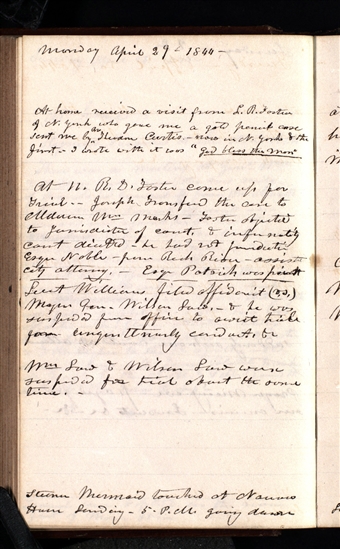 Monday April 29th 1844—
At home received a visit from L. R. Foster
of N. York who gave me a gold pencil case
sent me by Theron Curtis.— now in N. York & the
first— I wrote with it was "God bless the man"
At 11. R. D. Foster came up for
trial— Joseph transfered the case to
Alderman Wm Marks— Foster objected
to Jurisdiction of court, &
court decided he had not jurisdictn
Esqr Noble— from Rock River— assist
city attorney,— Esqr Patrick was
Lieut Williams filed affidavit
Major Gen. Wilson Law.— & he was
suspended from office to await trial
for ungentlemanly conduct, &c
Wm Law & Wilson Law were
suspended for trial about the same
time.—
Steamer Mermaid touched at Nauvoo
House Landing— 5. P.M. going down